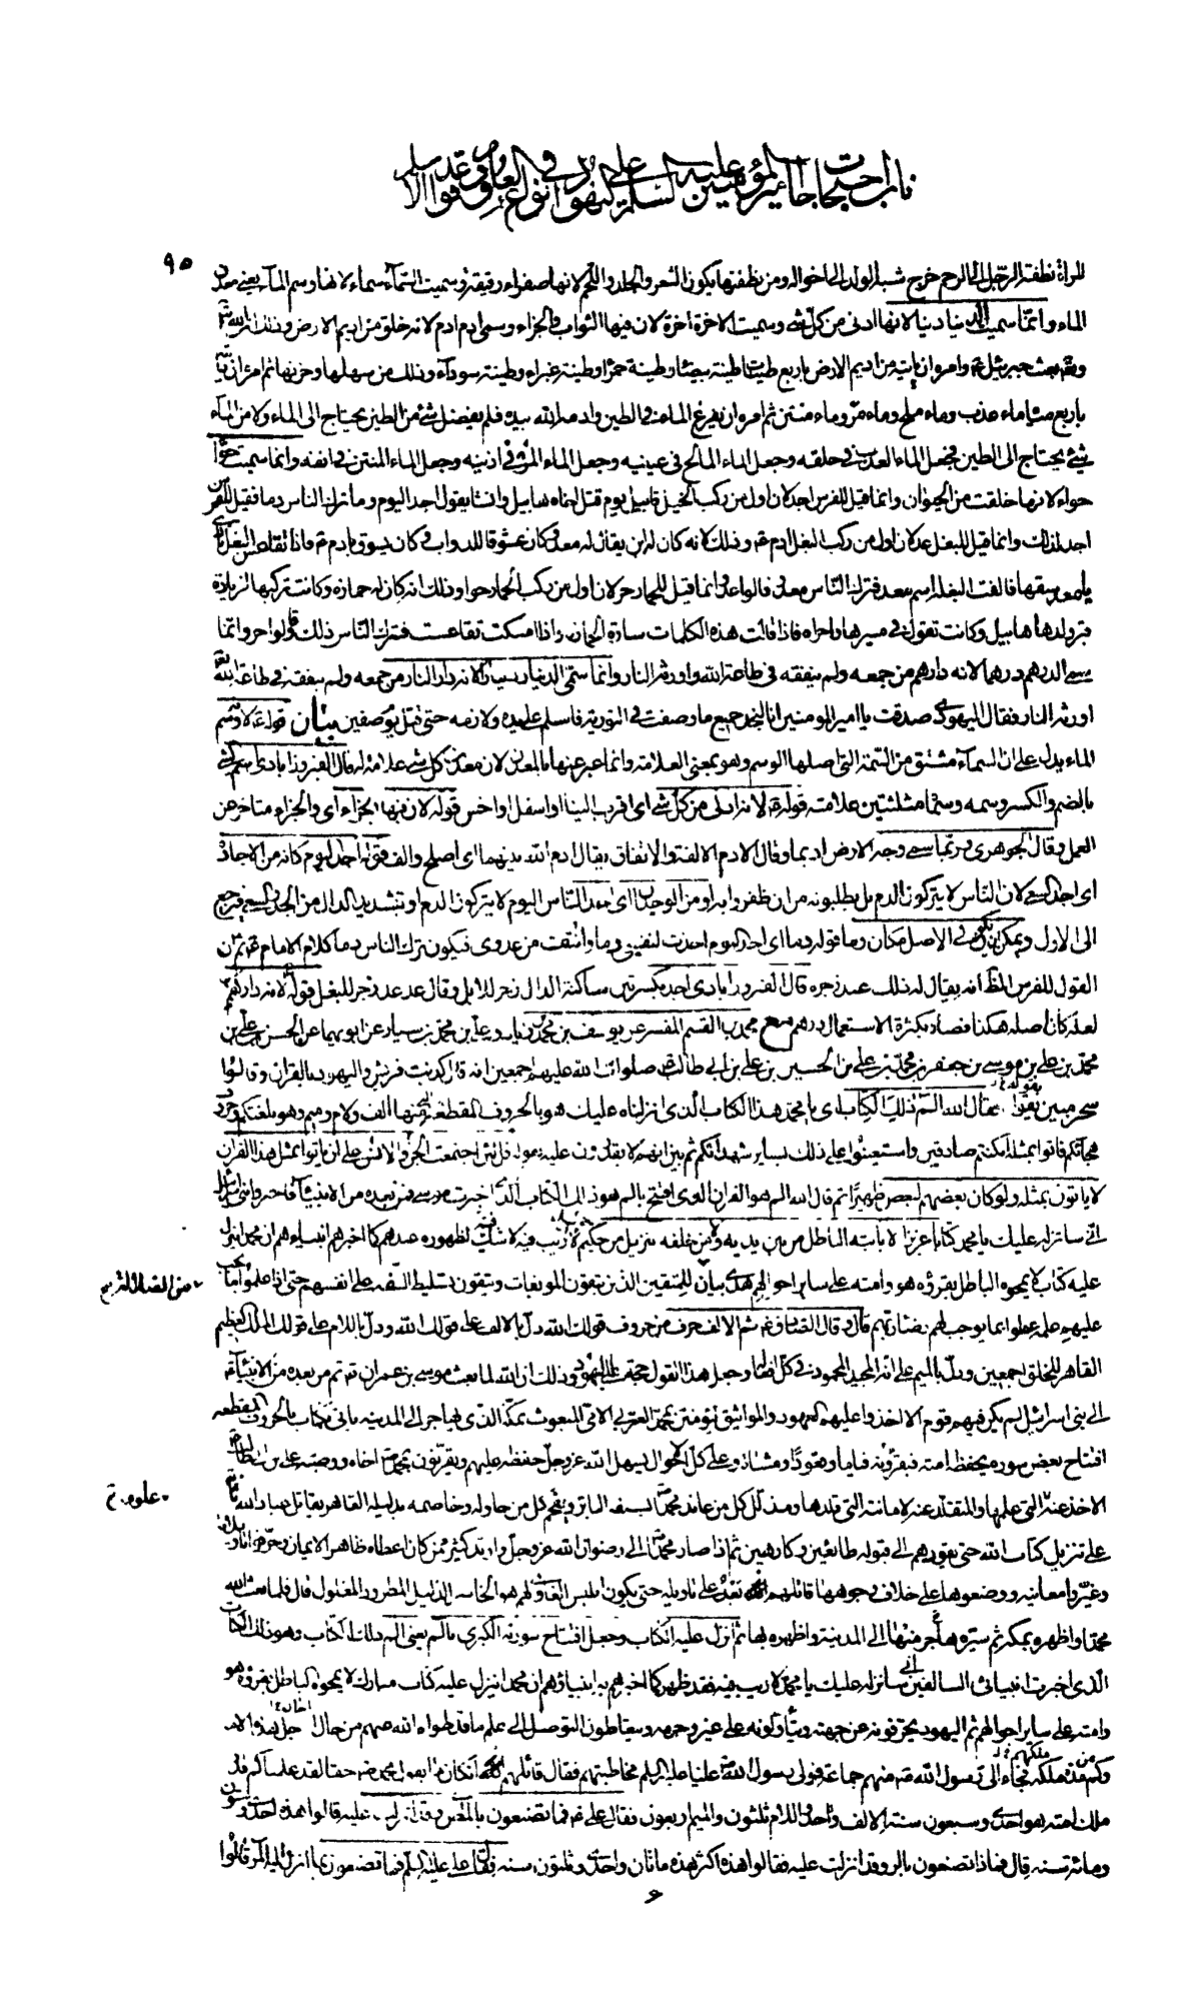 باب احتجاجات امير المؤمنين عليه السلام على اليهود في انواع العلوم
٩٥
المرأة نطفة الرجل الى الرحم خرج شبه الولد الى اخواله ومن نطفتها يكون الشعر والجلد واللحم لانها صفراء رقيقة وسميت السماء سماء لانها وسم الماء يعنى معدن
الماء وانما سميت الدنيا دنيا لانها ادنى من كل شئ وسميت الاخرة اخرة لان فيها الثواب والجزاء وسمى ادم ادم لانه خلق من اديم الارض وذلك ان الله
بعث جبرئيل وامره ان ياتيه من اديم الارض باربع طينات طينة بيضاء وطينة حمراء وطينة غبراء وطينة سوداء وذلك من سهلها وحزنها ثم امره ان ياتيه
باربع مياه ماء عذب وماء ملح وماء مر وماء منتن ثم امره ان يفرغ الماء في الطين وادمه الله بيده فلم يفضل شئ من الطين يحتاج الى الماء ولا من الماء
شئ يحتاج الى الطين فجعل الماء العذب في حلقه وجعل الماء المالح في عينيه وجعل الماء المر في اذنيه وجعل الماء المنتن في انفه وانما سميت حوا
حواء لانها خلقت من الحيوان وانما قيل للفرس اجد لان اول من ركب الخيل قابيل يوم قتل اخاه هابيل وانشا يقول اجد اليوم وما ترك الناس دما فقيل للفرس
اجد لذلك وانما قيل للبغل عد لان اول من ركب البغل ادم وذلك لانه كان له ابن يقال له معد وكان عشوقا للدواب وكان يسوق بادم فاذا تقاعس البغل نادى
يا معد سقها فالفت البغلة اسم معد فترك الناس معد وقالوا عد وانما قيل للحمار حر لان اول من ركب الحمار حوا وذلك انه كان لها حمارة وكانت تركبها لزيارة
قبر ولدها هابيل وكانت تقول في مسيرها واحراه فاذا قالت هذه الكلمات سارت الحمارة واذا امسكت تقاعست فترك الناس ذلك وقالوا حر وانما
سمى الدرهم درهما لانه دار هم من جمعه ولم ينفقه في طاعة الله اورثه النار وانما سمى الدينار دينارا لانه دار النار من جمعه ولم ينفقه في طاعة الله
اورثه النار فقال اليهودى صدقت يا امير المومنين انا لنجد جميع ما وصفت في التورية فاسلم على يده ولازمه حتى قتل يوم صفين بيان قوله لانها وسم
الماء يدل على ان السماء مشتق من السمة التي اصلها الوسم وهو بمعنى العلامة وانما عبر عنها بالمعدن لان معدن كل شئ علامة له قال الفيروزابادى اسم الشئ
بالضم والكسر وسمه وسماه مثلثتين علامته قوله لانها ادنى من كل شئ اى اقرب الينا او اسفل او اخس قوله لان فيها الجزاء اى والجزاء متاخر عن
العمل وقال الجوهرى وربما سمى وجه الارض اديما وقال الادم الالفة والاتفاق يقال ادم الله بينهما اى اصلح والف قوله اجد اليوم كانه من الاجادة
اى اجد السعى لان الناس لا يتركون الدم بل يطلبونه
الى الاول ويمكن ان يكون في الاصل مكان وما قوله دما اى اجد اليوم اخذت لنفسى دما وانتقمت من عدوى فيكون ترك الناس دما كلام الامام
القول للفرس الظاهر انه يقال له ذلك عند زجره قال الفيروزابادى اجد بكسرتين ساكنة الدال زجر للابل وقال عد عد زجر للبغل قوله لانه دار هم
لعله كان اصله هكذا فصار بكثرة الاستعمال درهم مع محمد بن القسم المفسر عن يوسف بن محمد بن زياد وعلى بن محمد بن سيار عن ابويهما عن الحسن بن على بن
محمد بن على بن موسى بن جعفر بن محمد بن على بن الحسين بن على بن ابى طالب صلوات الله عليهم اجمعين انه قال كذبت قريش واليهود بالقران وقالوا
سحر مبين تقوله فقال الله الم ذلك الكتاب اى يا محمد هذا الكتاب الذى انزلناه عليك هو بالحروف المقطعة التي منها الف ولام وميم وهو بلغتكم وحروف
هجائكم فاتوا بمثله ان كنتم صادقين واستعينوا على ذلك بساير شهدائكم ثم بين انهم لا يقدرون عليه بقوله قل لئن اجتمعت الجن والانس على ان ياتوا بمثل هذا القران
لا ياتون بمثله ولو كان بعضهم لبعض ظهيرا ثم قال الله الم هو القران الذى افتتح بالم هو ذلك الكتاب الذى اخبرت موسى فمن بعده من الانبياء فاخبروا بنى اسرائيل
انى سانزله عليك يا محمد كتابا عزيزا لا ياتيه الباطل من بين يديه ولا من خلفه تنزيل من حكيم حميد لا ريب فيه لا شك فيه لظهوره عندهم كما اخبرهم انبياءهم ان محمدا ينزل
عليه كتاب لا يمحوه الباطل يقرؤه هو وامته على ساير احوالهم هدى بيان للمتقين الذين يتقون الموبقات ويتقون تسليط السفه على انفسهم حتى اذا علموا ما يجب
عليهم علمه عملوا بما يوجب لهم رضا ربهم قال وقال الصادق ثم الالف حرف من حروف قولك الله دل بالالف على قولك الله ودل باللام على قولك الملك العظيم
القاهر للخلق اجمعين ودل بالميم على انه المجيد المحمود في كل افعاله وجعل هذا القول حجة على اليهود وذلك ان الله لما بعث موسى بن عمران ثم من بعده من الانبياء
الى بنى اسرائيل لم يكن فيهم قوم الا اخذوا عليهم العهود والمواثيق ليؤمنن بمحمد العربى الامى المبعوث بمكة الذى يهاجر الى المدينة ياتى بكتاب بالحروف المقطعة
افتتاح بعض سوره يحفظه امته فيقرؤنه قياما وقعودا ومشاة وعلى كل الاحوال يسهل الله عز وجل حفظه عليهم ويقرنون بمحمد اخاه ووصيه على بن ابى طالب
الاخذ عنه علومه التي علمها والمتقلد عنه لامانته التي قلدها ومذلل كل من عاند محمدا بسيفه الباتر ويفحم كل من حاوله وخاصمه بدليله القاهر يقاتل عباد الله
على تنزيل كتاب الله حتى يقودهم الى قبوله طائعين وكارهين ثم اذا صار محمد الى رضوان الله عز وجل وارتد كثير ممن كان اعطاه ظاهر الايمان وحرفوا تاويلاته
وغيروا معانيه ووضعوها على خلاف وجوهها قاتلهم بعد على تاويله حتى يكون ابليس الغاوى لهم هو الخاسر الذليل المطرود المغلول قال فلما بعث الله
محمدا واظهره بمكة ثم سيره منها الى المدينة واظهره بها ثم انزل عليه الكتاب وجعل افتتاح سورته الكبرى بالم يعنى الم ذلك الكتاب وهو ذلك الكتاب
الذى اخبرت انبيائى السالفين انى سانزله عليك يا محمد لا ريب فيه فقد ظهر كما اخبرهم به انبياؤهم ان محمدا ينزل عليه كتاب مبارك لا يمحوه الباطل يقرؤه هو
وامته على ساير احوالهم ثم اليهود يحرفونه عن جهته ويتأولونه على غير وجهه ويتعاطون التوصل الى علم ما قد طواه الله عنهم من حال اجل هذه الامة
وكم مدة ملكهم فجاء الى رسول الله منهم جماعة فولى رسول الله عليا عليه السلام مخاطبتهم فقال قائلهم ان كان ما يقول محمد حقا لقد علمناكم قدر
ملك امته هو احدى وسبعون سنة الالف واحد واللام ثلثون والميم اربعون فقال على فما تصنعون بالمص وقد انزلت عليه قالوا هذه احدى وستون
ومائة سنة قال فماذا تصنعون بالر وقد انزلت عليه فقالوا هذه اكثر هذه مائتان واحدى وثلثون سنة فقال على عليه السلام فما تصنعون بما انزل اليه المر قالوا